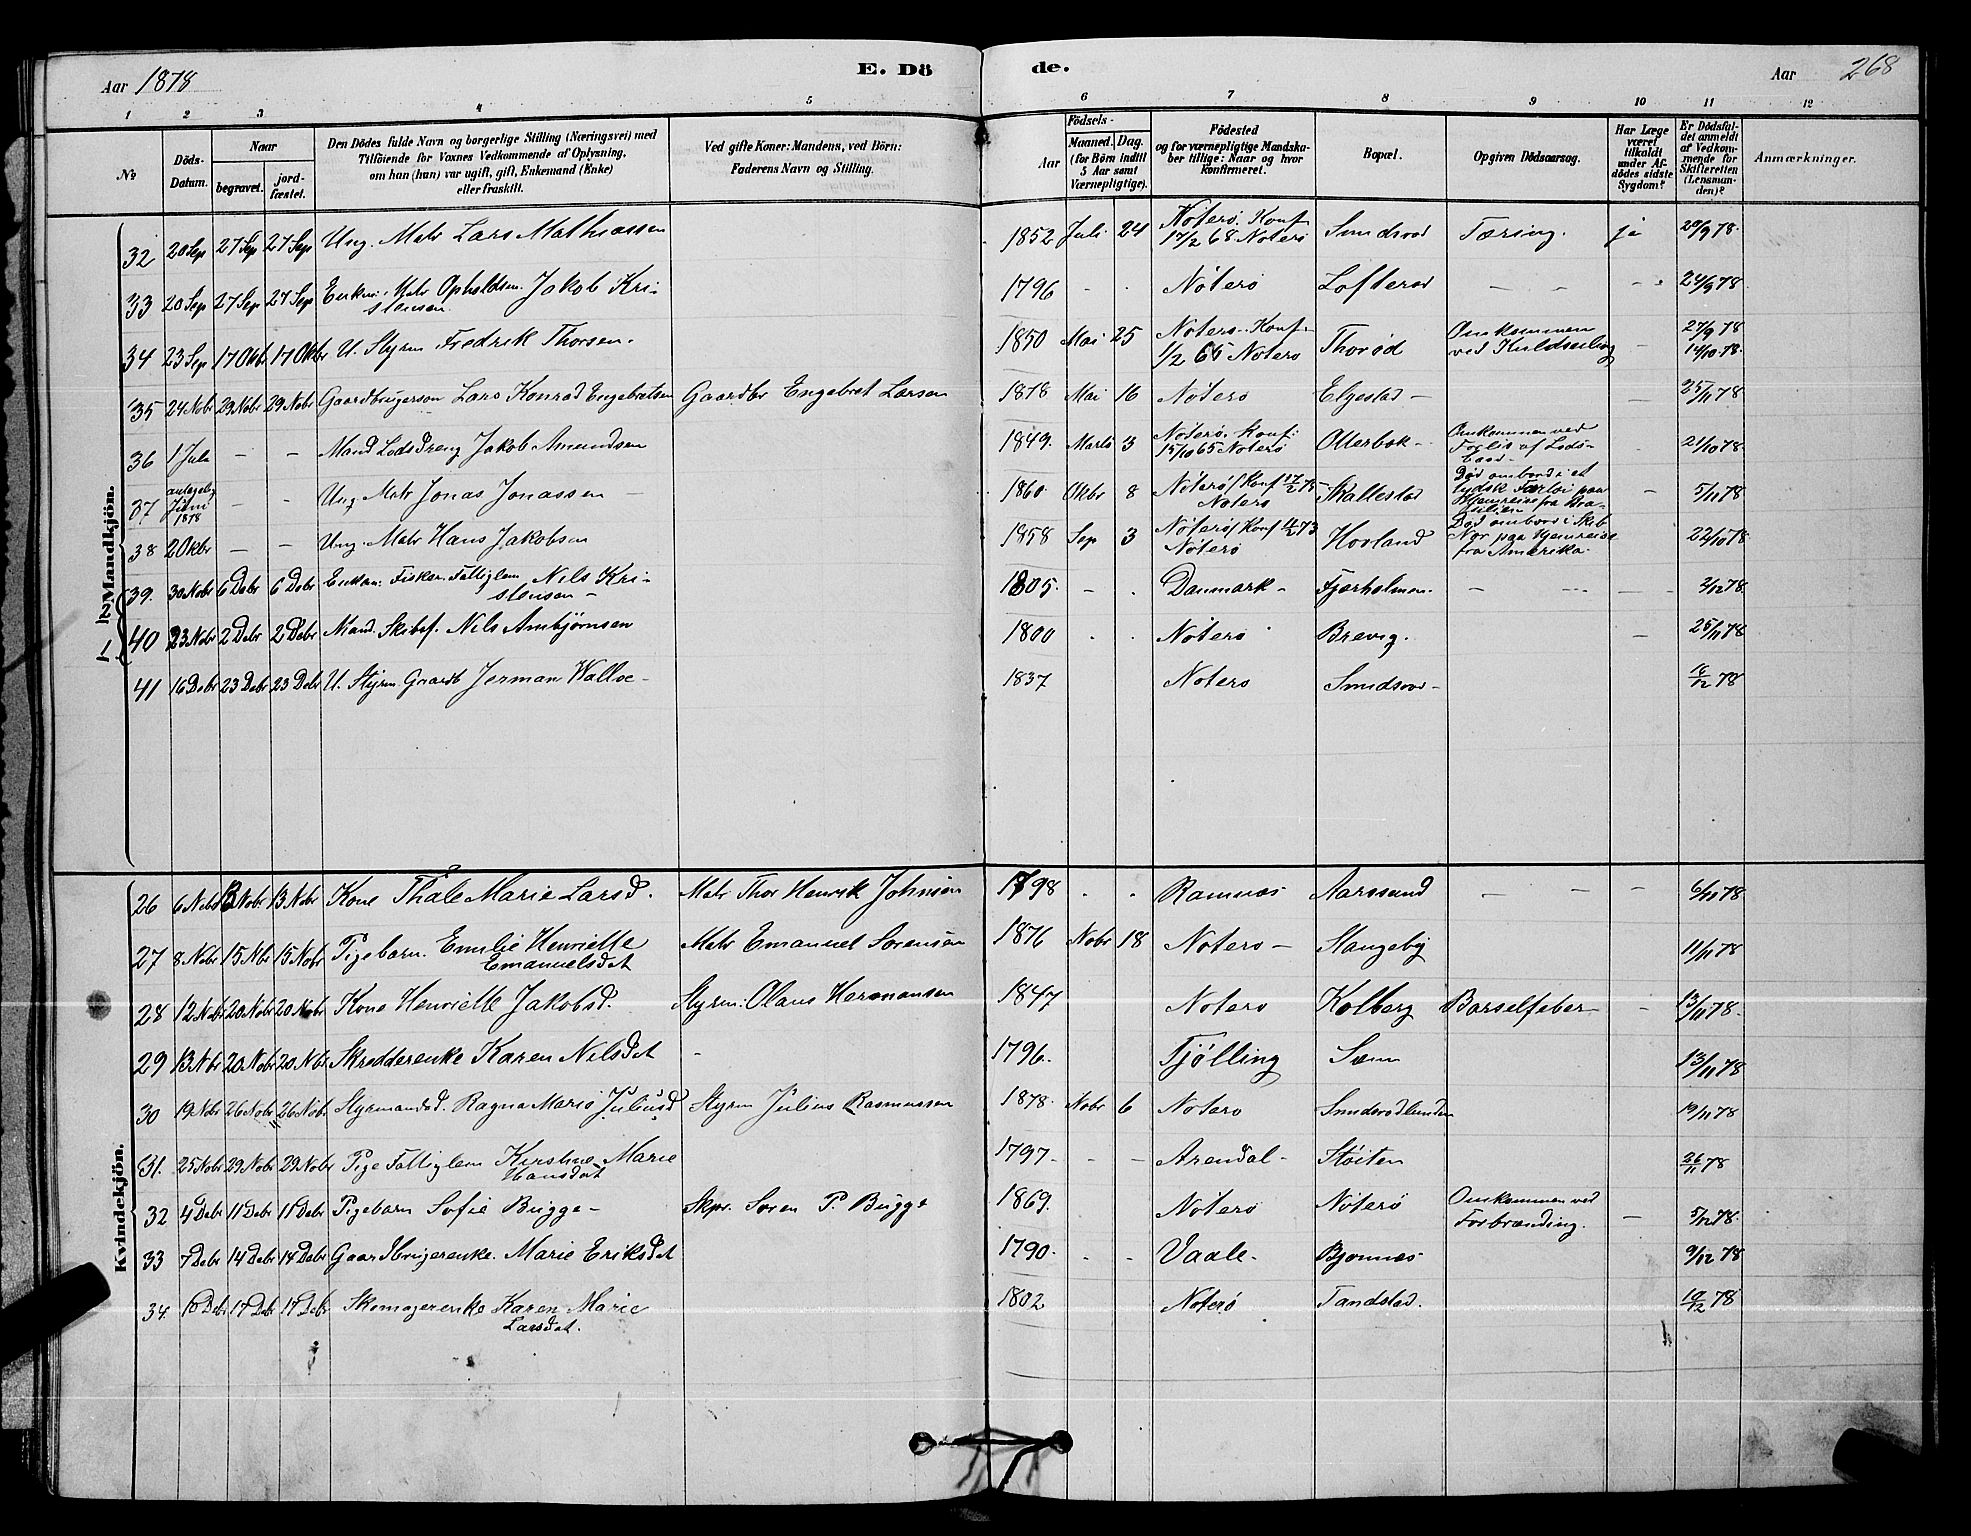 Aar 1878
E. Dö
de.
Aar
268
1 2 3 4 5 6 7 8 9 10 11 12
No
Döds-Datum.
Naar
begravet.
jord-fæstet.
Den Dödes fulde Navn og borgerlige Stilling (Næringsvei) med
Tilföiende for Voxnes Vedkommende af Oplysning,
om han (hun) var ugift, gift, Enkemand (Enke)
eller fraskilt.
Ved gifte Koner: Mandens, ved Börn:
Faderens Navn og Stilling.
Födsels-
Aar
Maaned. Dag.
(for Börn indtil
5 Aar samt
Værnepligtige).
Födested
og for værnepligtige Mandska-
ber tillige: Naar og hvor
konfirmeret.
Bopæl.
Opgiven Dödsaarsag.
Har Læge
været
tilkaldt
under Af-
dödes sidste
Sygdom?
Er Dödsfal-
det anmeldt
af Vedkom-
mende for
Skifteretten
(Lensman-
den)?
Anmærkninger.
Mandkjön.
32 20 Sep 27 Sep 27 Sep Ung. Matr Lars Mathiassen 1852 Juli 24 Nøterø. Konf 17/2 68 Noterø Smidsrod Tæring. ja 20/9 78.
33 20 Sep 27 Sep 27 Sep Enkm. Matr Opholdsm. Jakob Kri-
stensen. 1796 - - Nøterø Lofterød — — - 24/9 78
34 23 Sep 17 Okt 17 Oktbr U. Styrm Fredrik Thorsen. 1850 Mai 25 Noterø. Konf. 1/2 65 Noterø Thorød Omkommen
ved Kuldseiling - 27/9 78
14/10 78.
35 24 Nobr 29 Nobr 29 Nobr Gaardbrugerson Lars Konrad Engebretsen Gaardbr Engebret Larsen 1878 Mai 16 Nøterø Elgestad - — 25/11 78
36 1 Juli - - Mand Lodsdreng Jakob Amundsen 1849. Marts 3 Noterø. Konf: 15/10 65 Noterø Otterbæk - Omkommen ved
Forlis af Lods-
baad - 21/10 78.
37 antagelig
Juni
1878 - - Ung Matr Jonas Jonassen — 1860. Oktbr 8 Nøterø/Konf
Noterø Skallestad Død ombord i et
tydsk Fartøi paa
Hjemreise fra Bra-
silien - 5/11 78
38 2 Okbr - - Ung. Matr Hans Jakobsen 1858 Sep 3 Nøterø/Konf 4/2 73
Nøterø Hovland Død ombord i Skib
Nor paa Hjemreise
fra Amerika. 22/10 78
39. 30 Nobr 6 Debr 6 Debr Enkem. Fisker. Fattiglem Nils Kri-
stensen - 1805. - . Danmark - Fjærholmen. - — - 3/12 78.
40 23 Nobr 2 Debr 2 Debr Mand. Skibsf. Nils Ambjørnsen 1800 . . Nøterø Brevig. - 25/11 78
41 16 Debr 23 Debr 23 Debr U. Styrm Gaardb Jerman Walløe - 1837 Noterø Smidsrod - 18/12 78
Kvindekjön.
26 6 Nobr 13 Nobr 13 Nobr Kone Thale Marie Larsd. Matr Thor Henrik Johnsen 1798 . . Ramnæs Aarøsund - - - 6/11 78
27 8 Nobr 15 Nbr 15 Nobr Pigebarn. Emilie Henriette
Emanuelsdat Matr Emanuel Sorensen 1876 Nobr 18 Noterø - Stangeby 11/11 78
28 12 Nobr 20 Nobr 20 Nobr Kone Henriette Jakobsd. Styrm: Olaus Hermansen 1847 Noterø Kolberg Barselfeber - 13/11 78.
29 13 Nbr 20 Nobr 20 Nbr Skrædderenke Karen Nilsdat - 1796. Tjølling Sem 13/11 78
30 19 Nobr 26 Nobr 26 Nobr Styrmandsd. Ragna Marie Juliusd Styrm Julius Rasmussen 1878. Nobr 6 Noterø Smidsrødlunden 19/11 78
31. 25 Nobr 29 Nobr 29 Nobr Pige Fattiglem Kirstine Marie
Hansdat 1797 - - Arendal - Støiten 26/11 78
32 4 Debr 11 Debr 11 Debr Pigebarn Sofie Bugge - Skpr. Soren P. Bugge 1869. Nøterø Nøterø Omkommen ved
Forbrænding. - 5/12 78.
33 7 Debr 14 Debr 14 Debr Gaardbrugerenke. Marie Eriksdat 1790. - - Vaale - Bjonnes 9/12 78
34. 10 Debr 17 Debr 17 Debr Skomagerenke Karen Marie
Larsdat. 1802 Nøterø Tandstad. 10/12 78